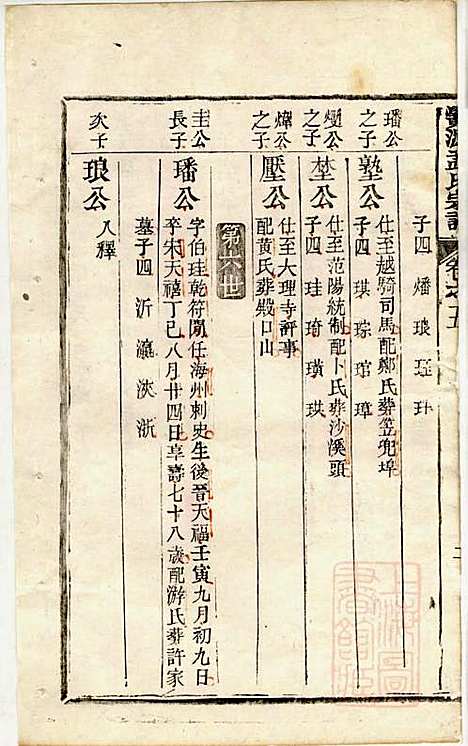 源孟氏宗譜 卷之五
子四 燔 琅 珏 玤
璠公之子
塾公
仕至越騎司馬配鄭氏葬笠兜埠
子四 琪 琮 琯 璋
燮公之子
埜公
仕至范陽統制配卜氏葬沙溪頭
子四 珪 琦 璜 瑛
燦公之子
壓公
仕至大理寺評事
配黃氏葬殿口山
第六世
圭公長子
璠公
字伯珪乾符間任海州刺史生後晉天福壬寅九月初九日
卒宋天禧丁巳八月廿四日享壽七十八歲配游氏葬許家
墓子四 沂 瀛 浹 浙
次子
琅公
入釋
二
上海圖書館藏